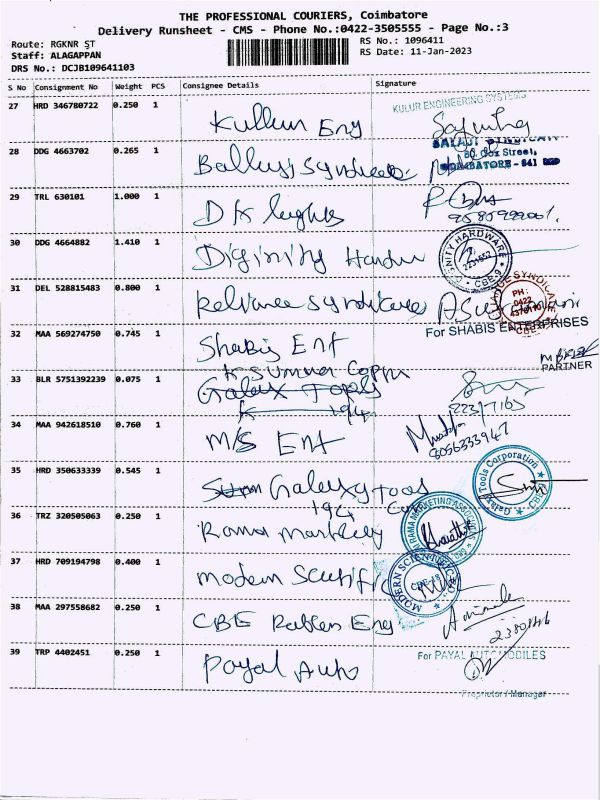 THE PROFESSIONAL COURIERS, Coimbatore
Delivery Runsheet - CMS - Phone No.:0422-3505555 - Page No.:3
Route: RGKNR ST
RS No.: 1096411
Staff: ALAGAPPAN
RS Date: 11-Jan-2023
DRS No.: DCJB109641103
S No Consignment No Weight PCS Consignee Details Signature
27 HRD 346780722 0.250 1 Kullur Eng
KULUR ENGINEERING SYSTEMS
28 DDG 4663702 0.265 1
COIMBATORE - 641
29 TRL 630101 1.000 1 DK
30 DDG 4664882 1.410 1 Diginity
HARDWARE
CBE-9
31 DEL 528815483 0.800 1 Reliance
PH:
0422
For SHABIS ENTERPRISES
32 MAA 569274750 0.745 1 Shabis Ent
PARTNER
33 BLR 5751392239 0.075 1
Galaxy Tools
34 MAA 942618510 0.760 1 M/S Ent
8056333947
35 HRD 350633339 0.545 1 Galaxy Tools
Galaxy Tools Corporation
36 TRZ 320505063 0.250 1 Rama
RAMA MARKETING
37 HRD 709194798 0.400 1 Modern
MODERN SCIENTIFIC
38 MAA 297558682 0.250 1 CBE Eng
39 TRP 4402451 0.250 1 Payal Auto
For PAYAL AUTOMOBILES
Proprietor / Manager